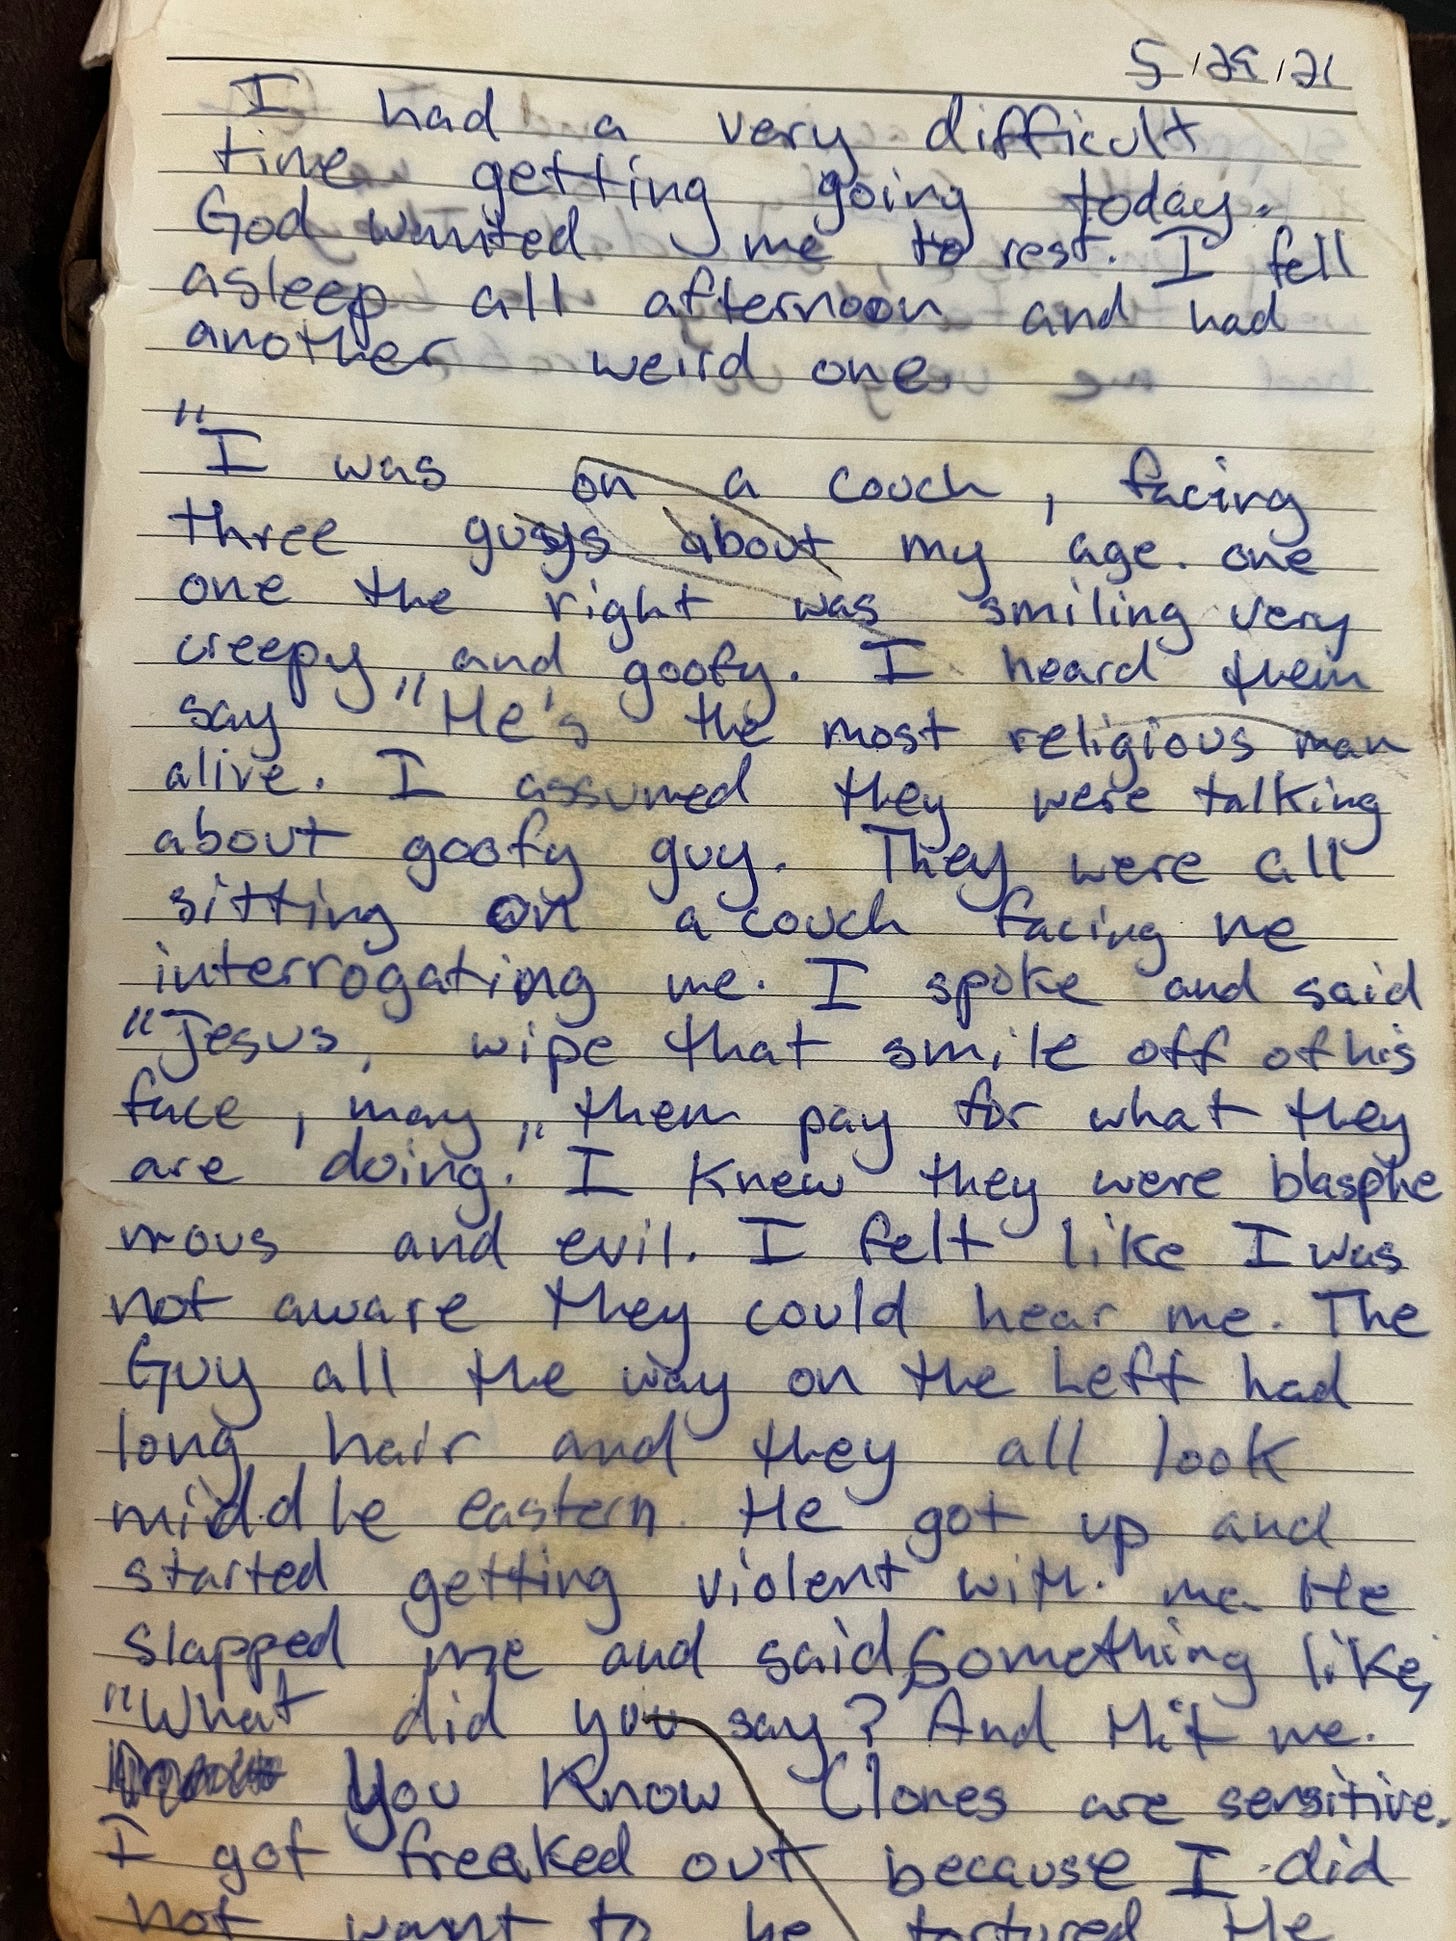 I had a very difficult
time getting going today.
God wanted me to rest. I fell
asleep all afternoon and had
another weird one.
"I was on a couch, facing
three guys about my age. one
one the right was smiling very
creepy and goofy. I heard them
say "He's the most religious man
alive." I assumed they were talking
about goofy guy. They were all
sitting on a couch facing me
interrogating me. I spoke and said
"Jesus, wipe that smile off of his
face, may them pay for what they
are doing." I knew they were blasphe
mous and evil. I felt like I was
not aware they could hear me. The
Guy all the way on the Left had
long hair and they all look
middle eastern. He got up and
started getting violent with me. He
slapped me and said, Something like,
"What did you say? And Hit me.
You Know Clones are sensitive.
I got freaked out because I did
not want to be tortured He